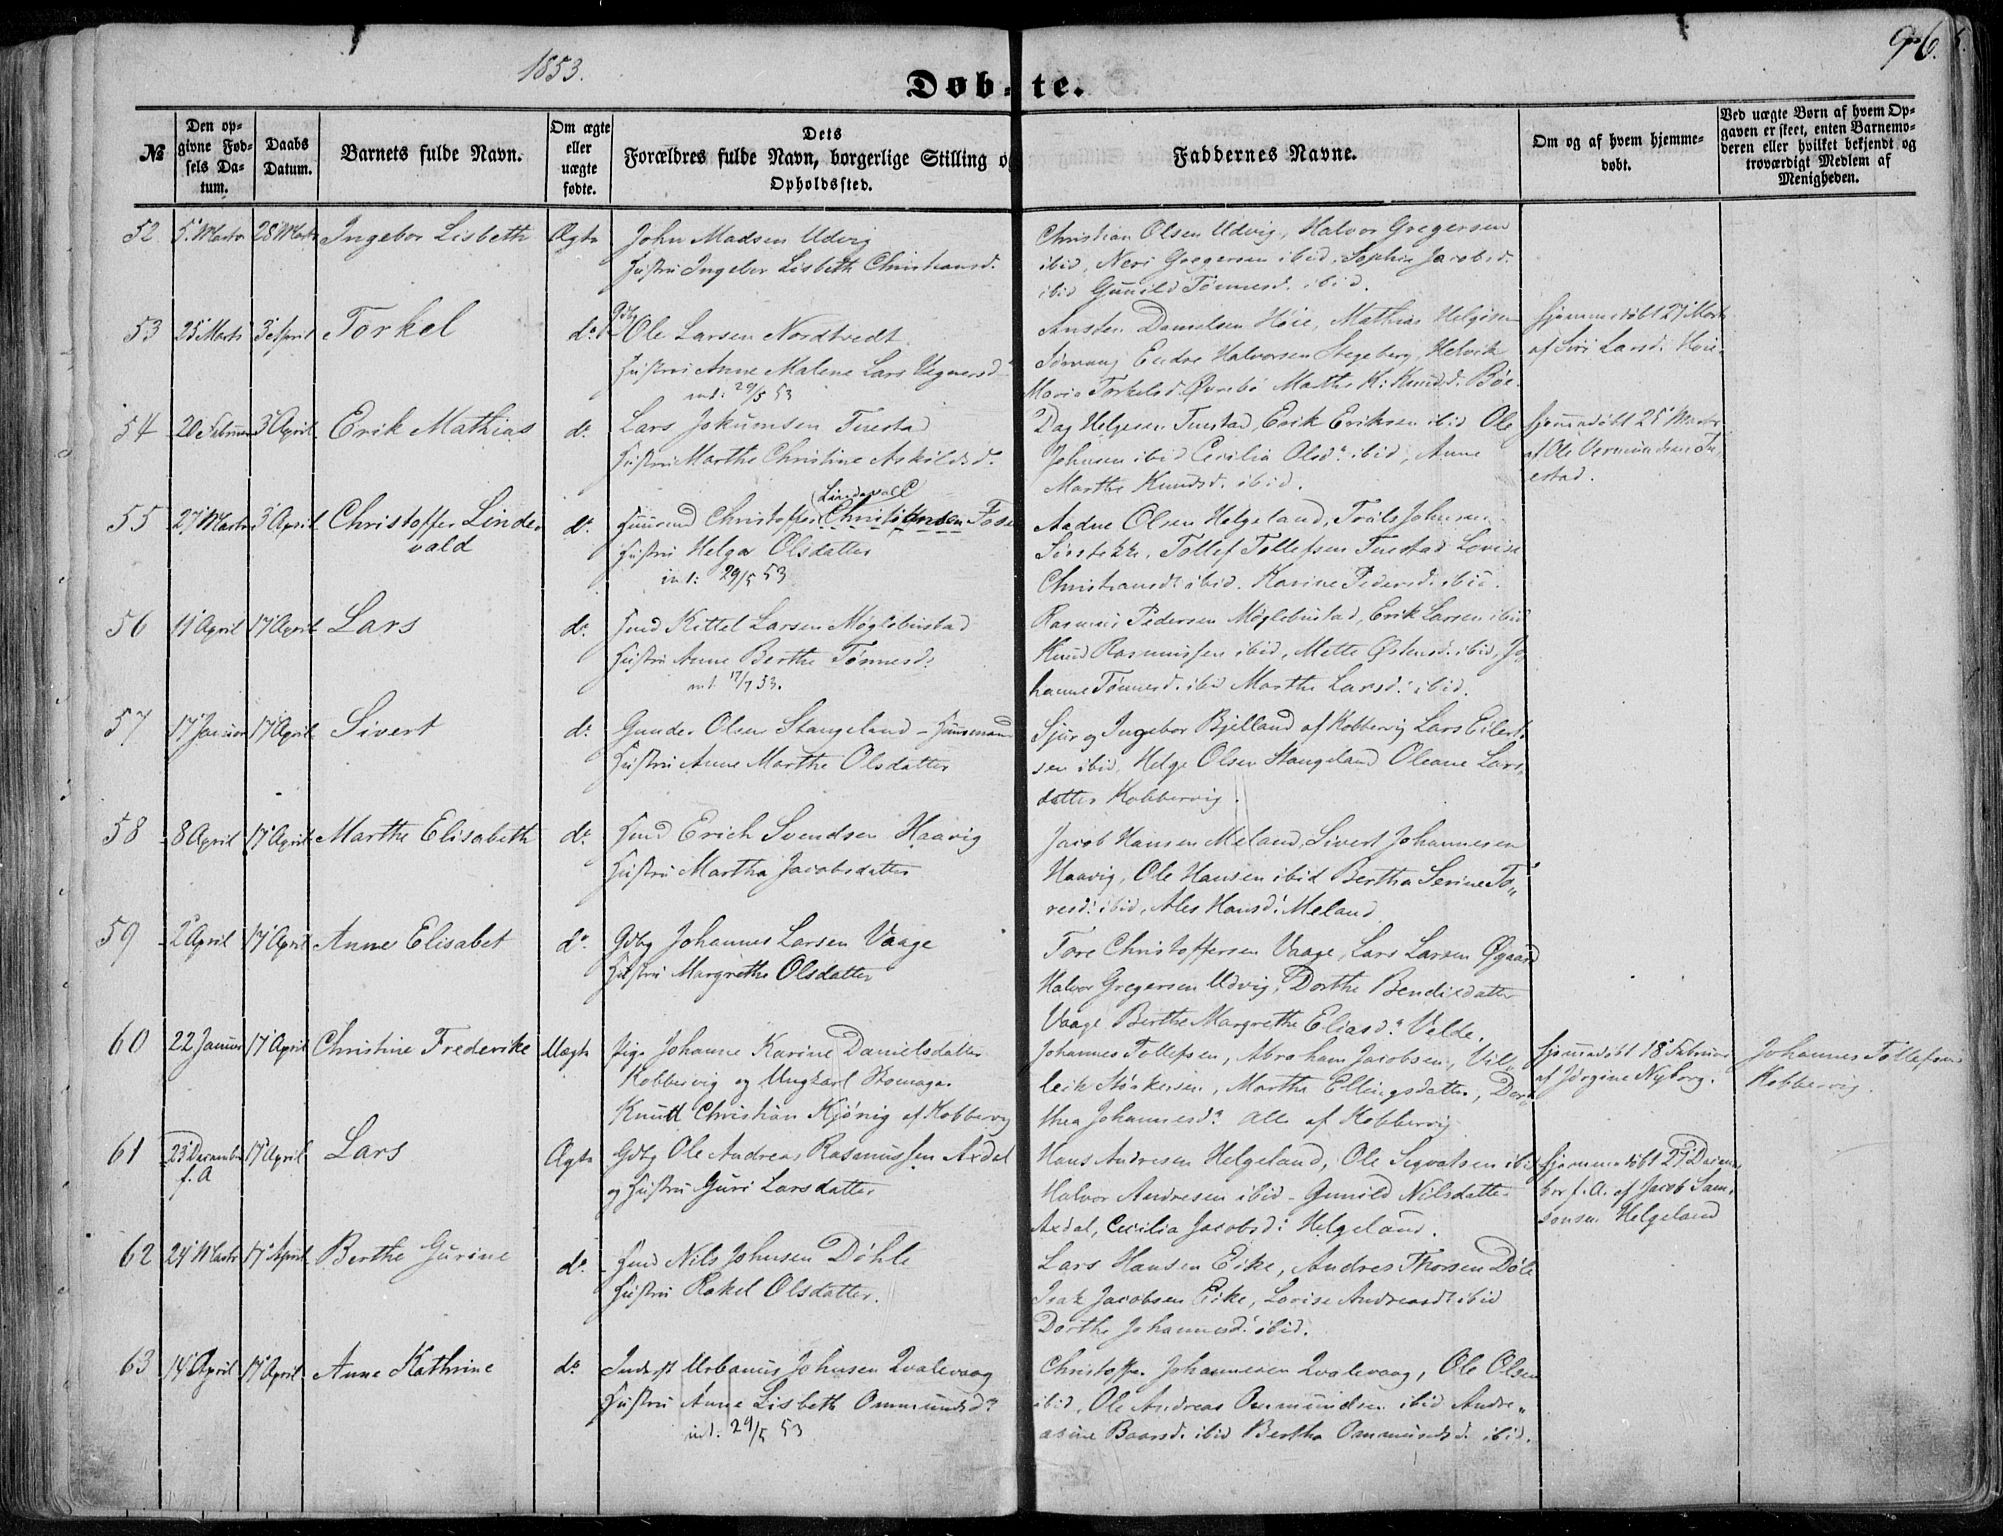 1853.
96.
Døb-te.
№
Den op-
givne Fød-
sels Da-
tum.
Daabs
Datum.
Barnets fulde Navn.
Om ægte
eller
uægte
fødte.
Dets
Forældres fulde Navn, borgerlige Stilling o
Opholdssted.
Faddernes Navne.
Om og af hvem hjemme-
døbt.
Ved uægte Børn af hvem Op-
gaven er skeet, enten Barnemo-
deren eller hvilket bekjendt og
troværdigt Medlem af
Menigheden.
52 5 Marts 28 Marts Ingebor Lisbeth Ægte John Madsen Udvig Christian Olsen Udvig, Halvor Gregersen
Hustru Ingebor Lisbeth Christiansd. ibid, Gregersen ibid, Sophie Jacobsd.
ibid Gunild Tønnesd. ibid.
53 25 Marts 3 April Torkel do. Gdbg Ole Larsen Nordtvedt Danielsen Høie, Mathias Helgesen Hjemmedøbt 27 Mart
Hustru Anne Malene Lars Endre Halvorsen Stegeberg, Helvik af Siri Larsd. Høie.
int. 29/5 53 Marie Torkelsd. Øvrebø Marthe K. Knudsd. Bøe
54 20 Februar 3 April Erik Mathias do. Lars Jokumsen Tuestad Dag Helgesen Tuestad, Erik Eriksen ibid Ole Hjemmedøbt 25 Marts
Hustru Marthe Christine Askildsd. Johnsen ibid Cecilia Olsd. ibid, Anne af Ole Vermundsen Tu-
Marthe Knudsd. ibid. estad.
55 27 Marts 3 April Christoffer Linde- do. Huusmd Christoffer (Lindevall) Christensen Fosen Aadne Olsen Helgeland, Truls Johnsen
vald Hustru Helga Olsdatter Tollef Tollefsen Tuestad Lovise
int: 29/5 53 Christiansd. ibid. Karine Pedersd. ibid.
56 11 April 17 April Lars do. Hmd Kittel Larsen Møglebustad Rasmus Pedersen Møglebustad, Erik Larsen ibid
Hustru Anne Berthe Tønnesd. Knud Rasmussen ibid, Mette Østensd. ibid, Jo-
int. 17/7 53. hanne Tønnesd. ibid Marthe Larsd. ibid.
57 17 Januar 17 April Sivert do. Gunder Olsen Stangeland – Huusmand Sjur og Ingebor Bjelland af Kobbervig Lars Eilert-
Hustru Anne Marthe Olsdatter sen ibid, Helge Olsen Stangeland Oleane Lars-
datter Kobbervig.
58 8 April 17 April Marthe Elisabeth do. Hmd Erich Svendsen Haavig Jacob Hansen Meland, Sivert Johannesen
Hustru Martha Jacobsdatter Haavig, Ole Hansen ibid Bertha Serine To-
resd. ibid, Ales Hansd. Meland
59 2 April 17 April Anne Elisabet do. Gdbg Johannes Larsen Vaage Tore Christoffersen Vaage, Lars Larsen Øgaard
Hustru Margrethe Olsdatter Halvor Gregersen Udvig, Dorthe Bendixdatter
Vaage Berthe Margrethe Eliasd. Velde.
60 22 Januar 17 April Christine Frederike Uægte Pige Johanne Karine Danielsdatter Johannes Tollefsen, Abraham Jacobsen, Hjemmedøbt 18 Februar Johannes Tollefsen
Kobbervig og Ungkarl Skomager Martha Ellingsdatter, Doro- af Jørgine Nyborg. Kobbervig
Knud Christian Kjønig af Kobbervig thea Johannesd. alle af Kobbervig
61 23 December 17 April Lars Ægte Gdbg Ole Andreas Rasmussen Axdal Hans Andresen Helgeland, Ole Sigvatsen ibid Hjemmedøbt 27 Decem-
f. A og Hustru Guri Larsdatter Halvor Andresen ibid – Gunild Nilsdatter ber f. A. af Jacob Sam-
Axdal, Cecilia Jacobsd. Helgeland. sonsen Helgeland
62 24 Marts 17 April Berthe Gurine do. Hmd Nils Johnsen Døhle Lars Hansen Eike, Andres Thorsen Døle
Hustru Rakel Olsdatter. Isak Jacobsen Eike, Lovise Andreasd. ibid
Dorthe Johannesd. ibid.
63 14 April 17 April Anne Kathrine do. Inderst Urbanus Johnsen Qvalevaag Christoffer Johannesen Qvalevaag, Ole Olsen
Hustru Anne Lisbeth Ommundsd. ibid, Ole Andreas Ommundsen ibid Andre-
int. 29/5 53 asine Baarsd. ibid Bertha Ommundsd. ibid.